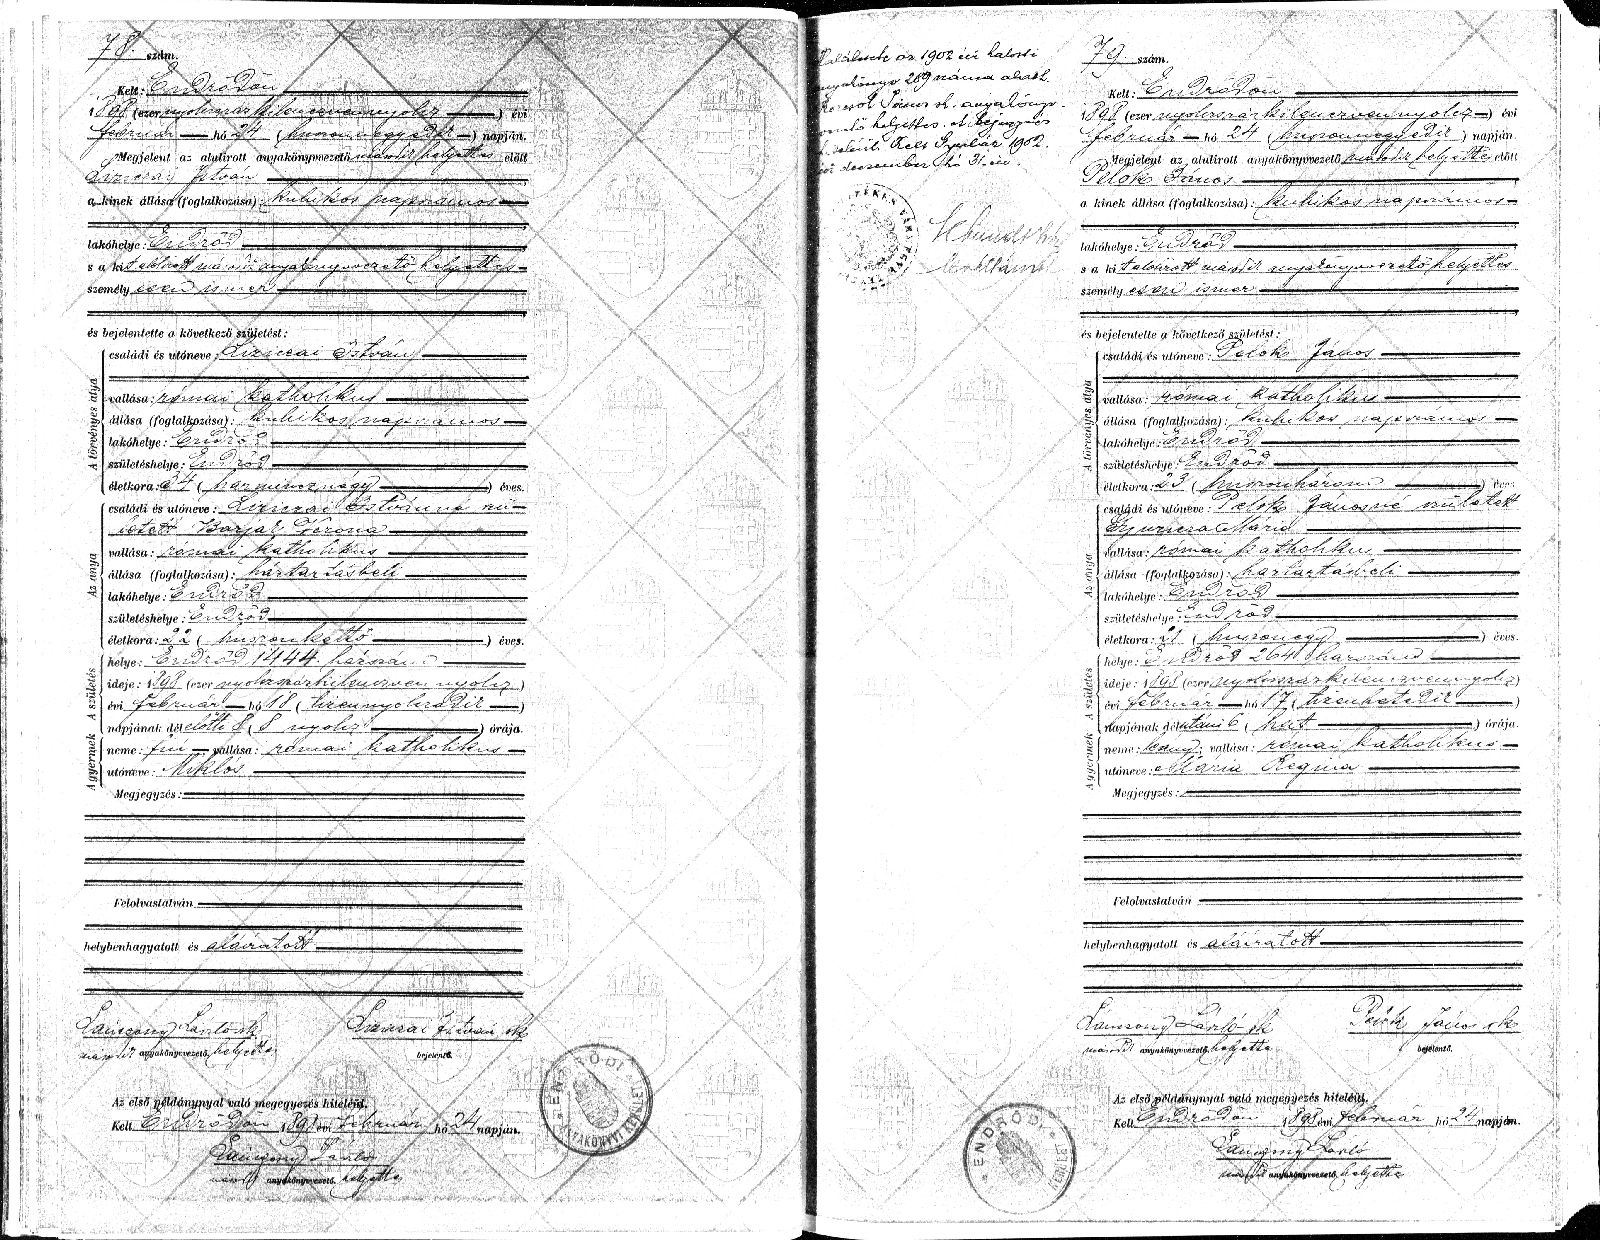 78. szám.
Kelt: Endrődön
1898 (ezer nyolczszázkilenczvennyolcz) évi
február hó 24 (huszonnegyedik) napján.
Megjelent az alulirott anyakönyvvezető másodh helyettes előtt
Liziczai István
a kinek állása (foglalkozása): kubikos napszámos
lakóhelye: Endrőd
s a kit alulirott másodh anyakönyvvezető helyettes
személyesen ismer
és bejelentette a következő születést:
A törvényes atya
családi és utóneve: Liziczai István
vallása: római katholikus
állása (foglalkozása): kubikos napszámos
lakóhelye: Endrőd
születéshelye: Endrőd
életkora: 34 (harmincznégy) éves.
Az anya
családi és utóneve: Liziczai Istvánné szü-
letett Varjas Verona
vallása: római katholikus
állása (foglalkozása): háztartásbeli
lakóhelye: Endrőd
születéshelye: Endrőd
életkora: 22 (huszonkettő) éves.
A születés
helye: Endrőd 1444. házszám
ideje: 1898 (ezer nyolczszázkilenczvennyolcz)
évi február hó 18 (tizennyolczadik)
napjának délelőtti 8 (nyolcz) órája.
A gyermek
neme: fiú vallása: római katholikus
utóneve: Miklós
Megjegyzés:
Felolvastatván
helybenhagyatott és aláiratott
László sk
másodh anyakönyvvezető helyettes
Liziczai István sk
bejelentő.
Az első példánynyal való megegyezés hiteléül.
Kelt Endrődön 1898 évi február hó 24 napján.
László
másodh anyakönyvvezető helyettes
ENDRŐDI ANYAKÖNYVI KERÜLET
Meghalt az 1902 évi halotti
anyakönyv 289 száma alatt.
János sk. anyakönyv-
vezető helyettes. A bejegyzés
Kelt Gyulán 1902.
évi december hó 31.-én.
79 szám.
Kelt: Endrődön
1898 (ezer nyolczszázkilenczvennyolcz) évi
február hó 24 (huszonnegyedik) napján.
Megjelent az alulirott anyakönyvvezető másodh helyettes előtt
Pelok János
a kinek állása (foglalkozása): kubikos napszámos
lakóhelye: Endrőd
s a kit alulirott másodh anyakönyvvezető helyettes
személyesen ismer
és bejelentette a következő születést:
A törvényes atya
családi és utóneve: Pelok János
vallása: római katholikus
állása (foglalkozása): kubikos napszámos
lakóhelye: Endrőd
születéshelye: Endrőd
életkora: 23 (huszonhárom) éves.
Az anya
családi és utóneve: Pelok Jánosné született
Gyuricza Mária
vallása: római katholikus
állása (foglalkozása): háztartásbeli
lakóhelye: Endrőd
születéshelye: Endrőd
életkora: 21 (huszonegy) éves.
A születés
helye: Endrőd 264 házszám
ideje: 1898 (ezer nyolczszázkilenczvennyolcz)
évi február hó 17 (tizenhetedik)
napjának délutáni 6 (hat) órája.
A gyermek
neme: leány; vallása: római katholikus
utóneve: Mária Regina
Megjegyzés:
Felolvastatván
helybenhagyatott és aláiratott
László sk
másodh anyakönyvvezető helyettes
Pelok János sk
bejelentő.
Az első példánynyal való megegyezés hiteléül.
Kelt Endrődön 1898 évi február hó 24 napján.
László
másodh anyakönyvvezető helyettes
ENDRŐDI